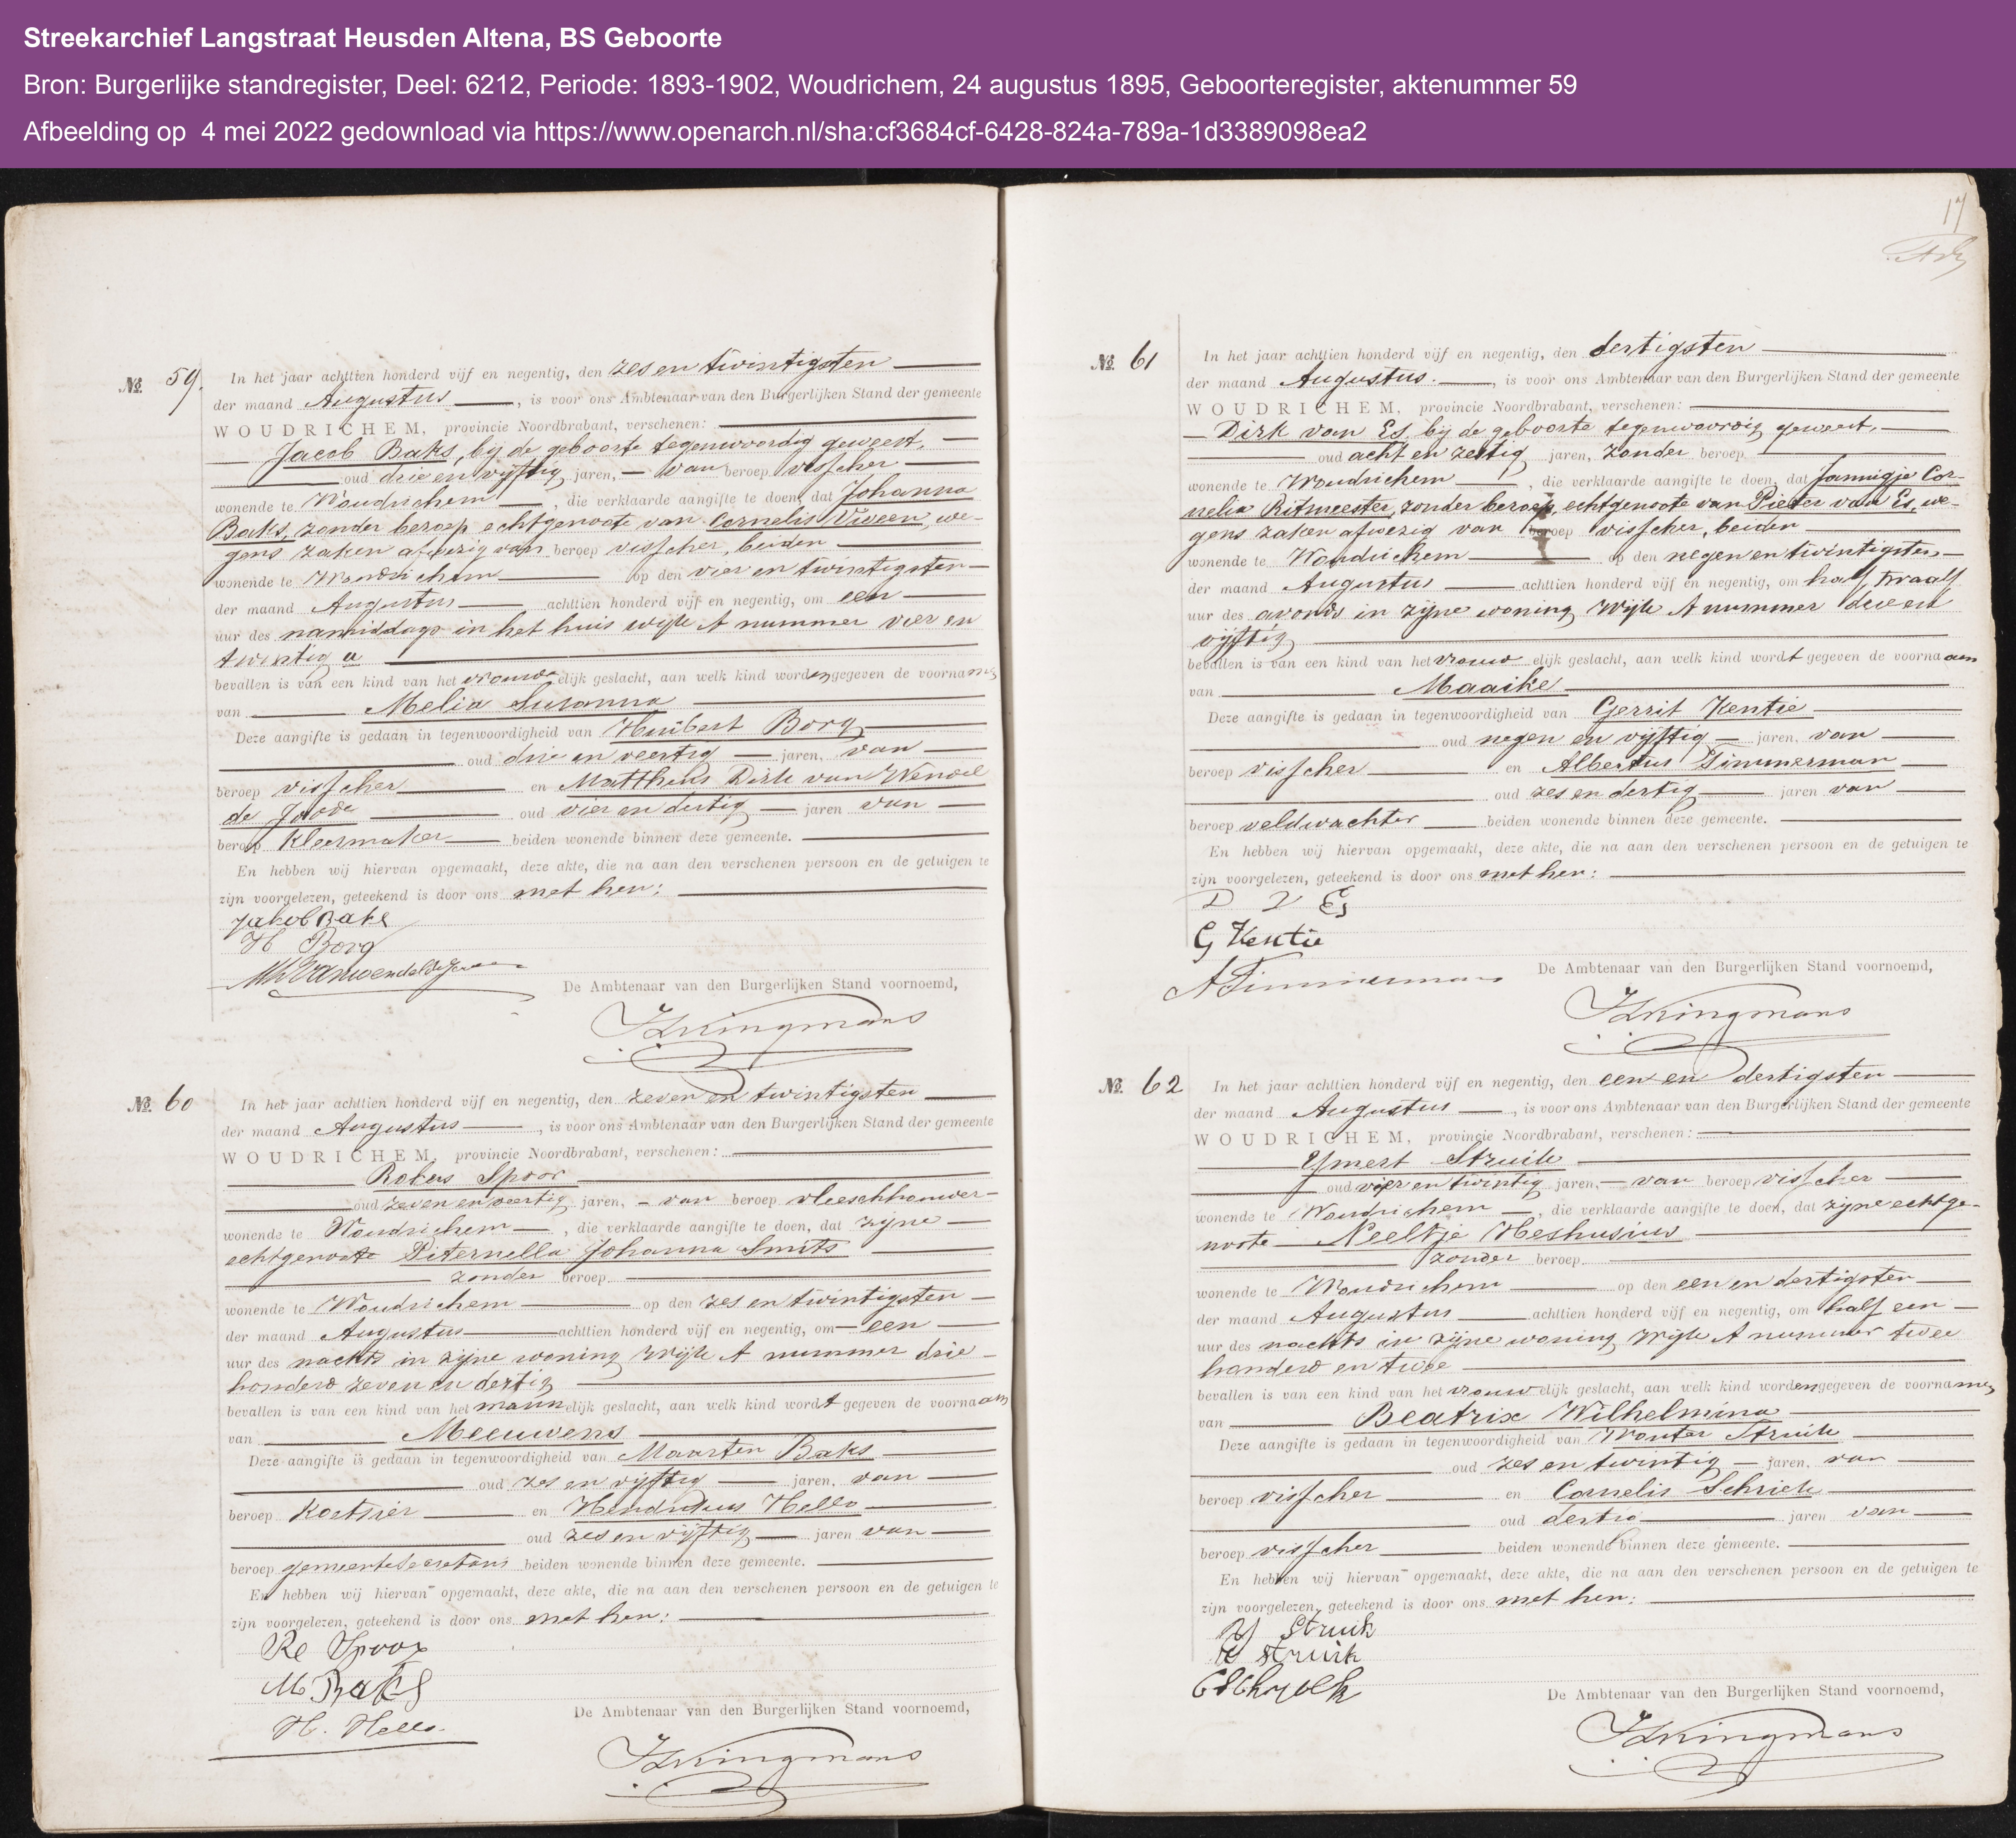 Streekarchief Langstraat Heusden Altena, BS Geboorte
Bron: Burgerlijke standregister, Deel: 6212, Periode: 1893-1902, Woudrichem, 24 augustus 1895, Geboorteregister, aktenummer 59
Afbeelding op  4 mei 2022 gedownload via https://www.openarch.nl/sha:cf3684cf-6428-824a-789a-1d3389098ea2
№ 59. In het jaar achttien honderd vijf en negentig, den zes en twintigsten
der maand Augustus, is voor ons Ambtenaar van den Burgerlijken Stand der gemeente
WOUDRICHEM, provincie Noordbrabant, verschenen:
Jacob Baks, bij de geboorte tegenwoordig geweest,
oud drie en vijftig jaren, van beroep visscher
wonende te Woudrichem, die verklaarde aangifte te doen, dat Johanna
Baks, zonder beroep echtgenoote van Cornelis Viveen, we-
gens zaken afwezig van beroep visscher, beiden
wonende te Woudrichem op den vier en twintigsten
der maand Augustus achttien honderd vijf en negentig, om een
uur des namiddags in het huis wijk A nummer vier en
twintig a
bevallen is van een kind van het vrouwelijk geslacht, aan welk kind worden gegeven de voornamen
van Melia Susanna
Deze aangifte is gedaan in tegenwoordigheid van Huibert Borg
oud drie en veertig jaren, van
beroep visscher en Mattheus Dirk van Wendel
de Joode oud vier en dertig jaren van
beroep kleermaker beiden wonende binnen deze gemeente.
En hebben wij hiervan opgemaakt, deze akte, die na aan den verschenen persoon en de getuigen te
zijn voorgelezen, geteekend is door ons met hen:
Jakob Baks
H Borg
De Ambtenaar van den Burgerlijken Stand voornoemd,
Kringmans
№ 60 In het jaar achttien honderd vijf en negentig, den zeven en twintigsten
der maand Augustus, is voor ons Ambtenaar van den Burgerlijken Stand der gemeente
WOUDRICHEM, provincie Noordbrabant, verschenen:
Robus Spoor
oud zeven en veertig jaren, van beroep vleeschhouwer
wonende te Woudrichem, die verklaarde aangifte te doen, dat zijne
echtgenoote Piternella Johanna Smits
zonder beroep
wonende te Woudrichem op den zes en twintigsten
der maand Augustus achttien honderd vijf en negentig, om een
uur des nachts in zijne woning wijk A nummer drie
honderd zeven en dertig
bevallen is van een kind van het mannelijk geslacht, aan welk kind wordt gegeven de voornaam
van Meeuwens
Deze aangifte is gedaan in tegenwoordigheid van Maarten Baks
oud zes en vijftig jaren, van
beroep koetsier en Hendrikus Hello
oud zes en vijftig jaren van
beroep gemeentesecretaris beiden wonende binnen deze gemeente.
En hebben wij hiervan opgemaakt, deze akte, die na aan den verschenen persoon en de getuigen te
zijn voorgelezen, geteekend is door ons met hen:
Ro Spoor
M Baks
H. Hello.
De Ambtenaar van den Burgerlijken Stand voornoemd,
Kringmans
17
№ 61 In het jaar achttien honderd vijf en negentig, den dertigsten
der maand Augustus., is voor ons Ambtenaar van den Burgerlijken Stand der gemeente
WOUDRICHEM, provincie Noordbrabant, verschenen:
Dirk van Es, bij de geboorte tegenwoordig geweest,
oud acht en zestig jaren, zonder beroep
wonende te Woudrichem, die verklaarde aangifte te doen, dat Jannigje Cor-
nelia Ritmeester, zonder beroep, echtgenoote van Pieter van Es, we-
gens zaken afwezig van beroep visscher, beiden
wonende te Woudrichem op den negen en twintigsten
der maand Augustus achttien honderd vijf en negentig, om half twaalf
uur des avonds in zijne woning wijk A nummer
vijftig
bevallen is van een kind van het vrouwelijk geslacht, aan welk kind wordt gegeven de voornaam
van Maaike
Deze aangifte is gedaan in tegenwoordigheid van Gerrit Kentie
oud negen en vijftig jaren, van
beroep visscher en Albertus Timmerman
oud zes en dertig jaren van
beroep veldwachter beiden wonende binnen deze gemeente.
En hebben wij hiervan opgemaakt, deze akte, die na aan den verschenen persoon en de getuigen te
zijn voorgelezen, geteekend is door ons met hen:
D V Es
G Kentie
A Timmerman
De Ambtenaar van den Burgerlijken Stand voornoemd,
Kringmans
№ 62 In het jaar achttien honderd vijf en negentig, den een en dertigsten
der maand Augustus, is voor ons Ambtenaar van den Burgerlijken Stand der gemeente
WOUDRICHEM, provincie Noordbrabant, verschenen:
Ymert Struik
oud vier en twintig jaren, van beroep visscher
wonende te Woudrichem, die verklaarde aangifte te doen, dat zijne echtge-
noote Neeltje Heshusius
zonder beroep
wonende te Woudrichem op den een en dertigsten
der maand Augustus achttien honderd vijf en negentig, om half een
uur des nachts in zijne woning wijk A nummer twee
honderd en twee
bevallen is van een kind van het vrouwelijk geslacht, aan welk kind worden gegeven de voornamen
van Beatrix Wilhelmina
Deze aangifte is gedaan in tegenwoordigheid van Wouter Struik
oud zes en twintig jaren, van
beroep visscher en Cornelis Schriek
oud dertig jaren van
beroep visscher beiden wonende binnen deze gemeente.
En hebben wij hiervan opgemaakt, deze akte, die na aan den verschenen persoon en de getuigen te
zijn voorgelezen, geteekend is door ons met hen:
Y Struik
W Struik
De Ambtenaar van den Burgerlijken Stand voornoemd,
Kringmans